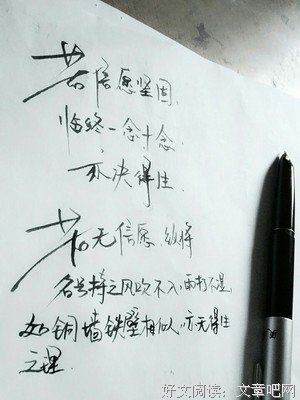 若信愿坚固，
临终一念十念，
亦决得生。
若无信愿，纵将
名号持之风吹不入，雨打不湿，
如铜墙铁壁相似，亦无得生
之理。
好文阅读：文章吧网